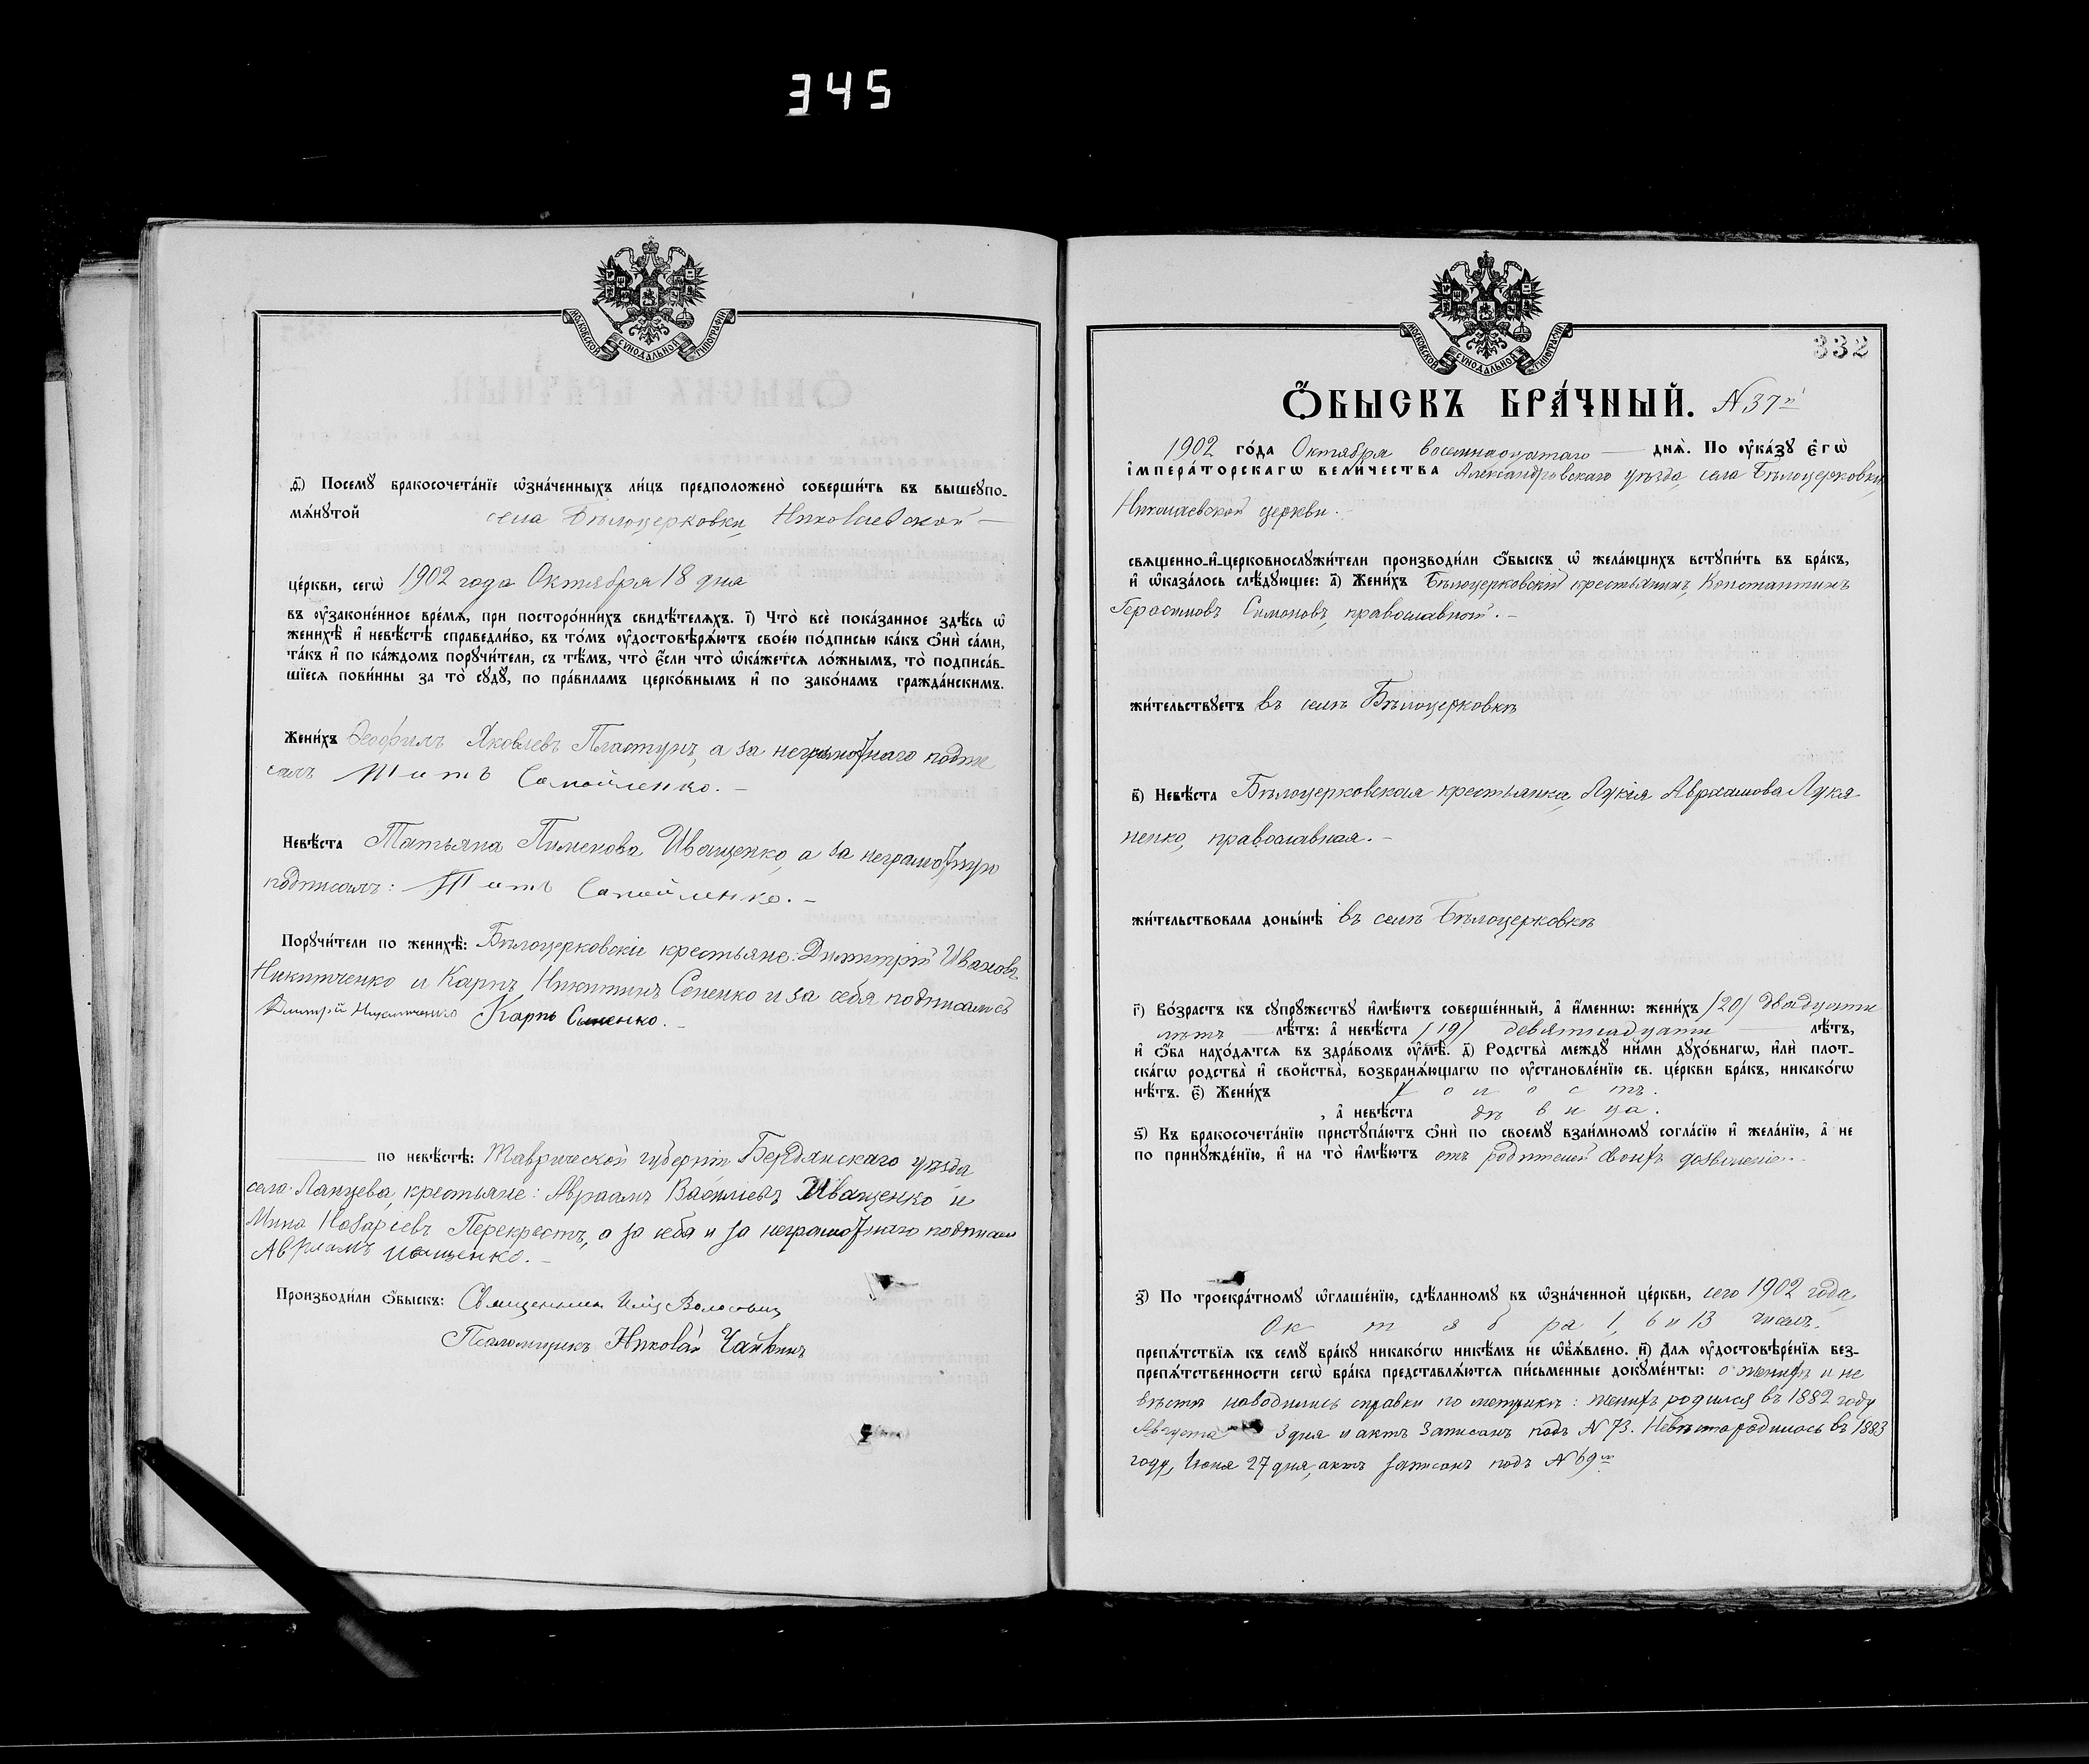 345
МОСКОВСКОЙ СУНОДАЛЬНОЙ ТИПОГРАФІИ
Посемꙋ̀ бракосочета́нїе ѡ҆зна́ченныхъ ли́цъ предположено̀ соверши́ть въ вышеꙋпо-
мѧ́нꙋтой села Бѣлоцерковки, Николаевской —
це́ркви, сегѡ̀ 1902 года Октября 18 дня
въ ᲂу҆законе́нное вре́мѧ, при посторо́ннихъ свидѣ́телѧхъ. і҃) Что̀ всѐ пока́занное здѣ́сь ѡ҆
женихѣ̀ и҆ невѣ́стѣ справедли́во, въ то́мъ ᲂу҆достовѣрѧ́ютъ свое́ю по́дписью ка́къ ѻ҆нѝ са́ми,
та́къ и҆ по ка́ждомъ порꙋчи́тели, съ тѣ́мъ, что̀ є҆́сли что̀ ѡ҆ка́жетсѧ ло́жнымъ, то̀ подписа́в-
шїесѧ пови́нны за то̀ сꙋдꙋ̀, по пра́виламъ церко́внымъ и҆ по зако́намъ гражда́нскимъ.
Жени́хъ Ѳеофилъ Яковлевъ Пластунъ, а за неграмотнаго подпи
салъ Титъ Самойленко. —
Невѣ́ста Татьяна Пименова Иващенко, а за неграмотную
подписалъ: Титъ Самойленко. —
Порꙋчи́тели по женихѣ̀: Бѣлоцерковскіе крестьяне: Димитрій Ивановъ
Никитченко и Карпъ Никитинъ Сененко и за себя подписались
Дмитрій Никитченко Карпъ Сененко. —
по невѣ́стѣ: Таврической губерніи Бердянскаго уѣзда
села Ланцева, крестьяне: Авраамъ Василіевъ Иващенко и
Мина Назаріевъ Перекрестъ, а за себя и за неграмотнаго подписалъ
Авраамъ Иващенко. —
Производи́ли ѻ҆́быскъ: Священникъ Волосович
Псаломщикъ Николай Чайкинъ
МОСКОВСКОЙ СУНОДАЛЬНОЙ ТИПОГРАФІИ
332
Ѻ҆́БЫСКЪ БРА́ЧНЫЙ. N 37й
1902 го́да Октября восемнадцатаго — днѧ̀. По ᲂу҆ка́зꙋ є҆гѡ̀
і҆мпера́торскагѡ вели́чества Александровскаго уѣзда, села Бѣлоцерковки,
Николаевской церкви.
свѧщенно-и҆-церковнослꙋжи́тели производи́ли ѻ҆́быскъ ѡ҆ жела́ющихъ встꙋпи́ть въ бра́къ,
и҆ ѡ҆каза́лось слѣ́дꙋющее: а҃) Жени́хъ Бѣлоцерковскій крестьянинъ, Константинъ
Герасимовъ Симоновъ, православной. —
жи́тельствꙋетъ въ селѣ Бѣлоцерковкѣ
в҃) Невѣ́ста Бѣлоцерковская крестьянка, Лукія Авраамова Лукя
ненко, православная. —
жи́тельствовала доны́нѣ въ селѣ Бѣлоцерковкѣ
г҃) Во́зрастъ къ сꙋпрꙋ́жествꙋ и҆мѣ́ютъ соверше́нный, а҆ и҆́меннѡ: жени́хъ /20/ двадцати
лѣтъ — лѣ́тъ: а҆ невѣ́ста /19/ девятнадцати — лѣ́тъ,
и҆ ѻ҆́ба нахо́дѧтсѧ въ здра́вомъ ᲂу҆мѣ̀. д҃) Родства̀ междꙋ̀ ни́ми дꙋхо́внагѡ, и҆лѝ плот-
ска́гѡ родства̀ и҆ свойства̀, возбранѧ́ющагѡ по ᲂу҆становле́нїю св. це́ркви бра́къ, никако́гѡ
нѣ́тъ. є҃) Жени́хъ холостъ.
, а҆ невѣ́ста дѣвица.
ѕ҃) Къ бракосочета́нїю пристꙋпа́ютъ ѻ҆нѝ по своемꙋ̀ взаи́мномꙋ согла́сїю и҆ жела́нїю, а҆ не
по принꙋжде́нїю, и҆ на то̀ и҆мѣ́ютъ отъ родителей своихъ дозволеніе. —
з҃) По троекра́тномꙋ ѡ҆глаше́нїю, сдѣ́ланномꙋ въ ѡ҆зна́ченной це́ркви, сего 1902 года,
Октября 1, 6 и 13 числъ,
препѧ́тствїѧ къ семꙋ̀ бра́кꙋ никако́гѡ никѣ́мъ не ѡ҆б̾ѧ́влено. и҃) Длѧ ᲂу҆достовѣре́нїѧ без-
препѧ́тственности сегѡ̀ бра́ка представлѧ́ютсѧ пи́сьменные докꙋме́нты: о женихѣ и не
вѣстѣ наводились справки по метрикѣ: женихъ родился въ 1882 году
Августа 3 дня и актъ записанъ подъ N 73. Невѣста родилась въ 1883
году, Іюня 27 дня, актъ записанъ подъ N 69м